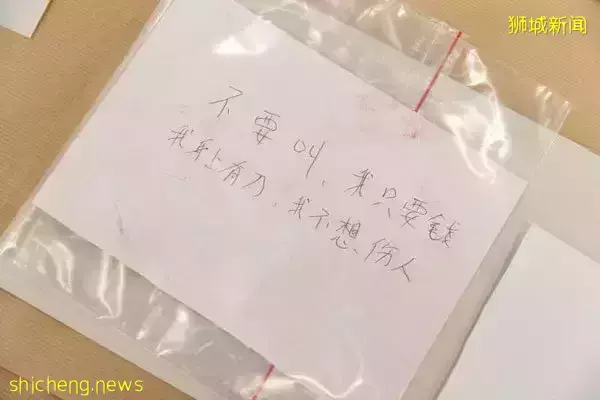 狮城新闻
不要叫、我只要钱
我身上有刀、我不想伤人
shicheng.news